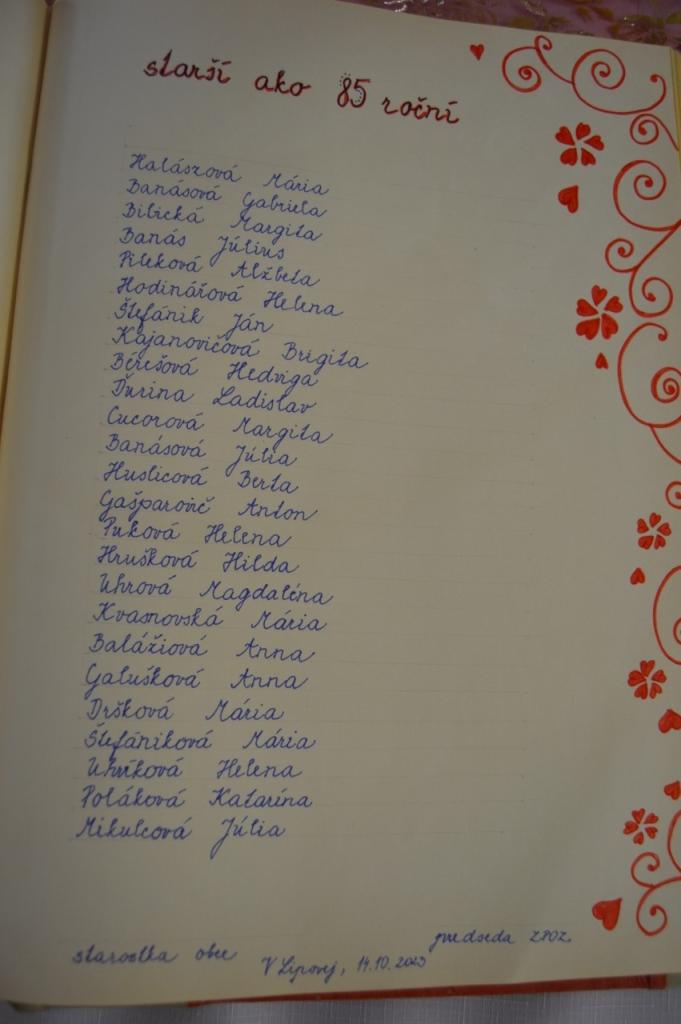 starší ako 85 roční
Halászová Mária
Banásová Gabriela
Bilická Margita
Banás Július
Pileková Alžbeta
Hodinářová Helena
Štefánik Ján
Kajanovičová Brigita
Bérešová Hedviga
Ďurina Ladislav
Cucorová Margita
Banásová Júlia
Huslicová Berta
Gašparovič Anton
Puková Helena
Hrušková Hilda
Uhrová Magdaléna
Kvasnovská Mária
Balážiová Anna
Galušková Anna
Dršková Mária
Štefániková Mária
Uhríková Helena
Poláková Katarína
Mikulcová Júlia
starostka obce
V Lipovej, 14.10.2023
predseda ZPOZ